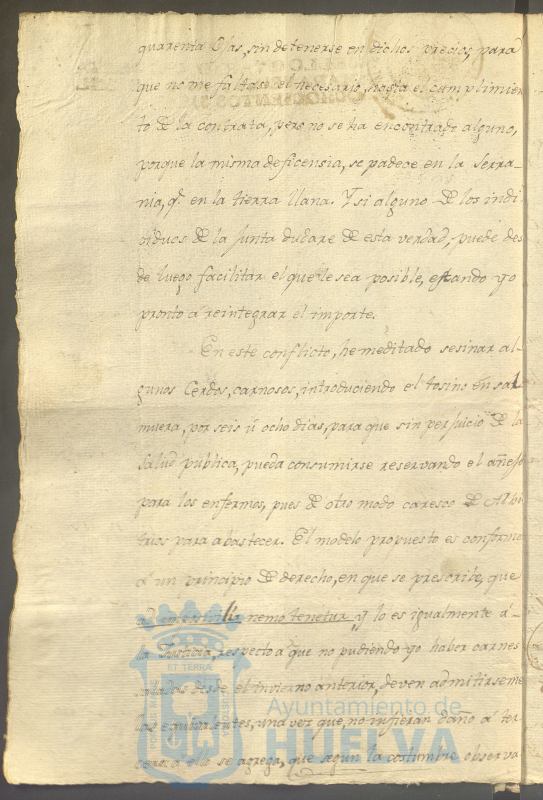 quarenta Rs, sin detenerse en dichos precios, para
que no me faltase el necesario, hasta el cumplimien
to de la contrata, pero no se ha encontrado alguno,
porque la misma deficensia, se padece en la Serra-
nia, q.e en la tierra llana. Y si alguno de los indi-
viduos de la Junta dudare de esta verdad, puede des
de luego facilitar el que le sea posible, estando yo
pronto á reintegrar el importe.
En este conflicto, he meditado sesinar al-
gunos Cerdos, carnosos, introduciendo el tosino en sal
muera, por seis ú ocho dias, para que sin perjuicio de la
Salud publica, pueda consumirse reservando el añejo
para los enfermos, pues de otro modo caresco de Albi
trios para abastecer. El modelo propuesto es conforme
á un principio de derecho, en que se prescribe, que
ad imposivilis nemo tenetur, y lo es igualmente á
la Justicia, respecto á que no pudiendo yo haber carnes
saladas desde el invierno anterior, deven admitirseme
las equibalentes, una vez que no infieran daño á ter
cero: á ello se agrega, que segun la costumbre observa
ET TERRÆ
Ayuntamiento de
HUELVA